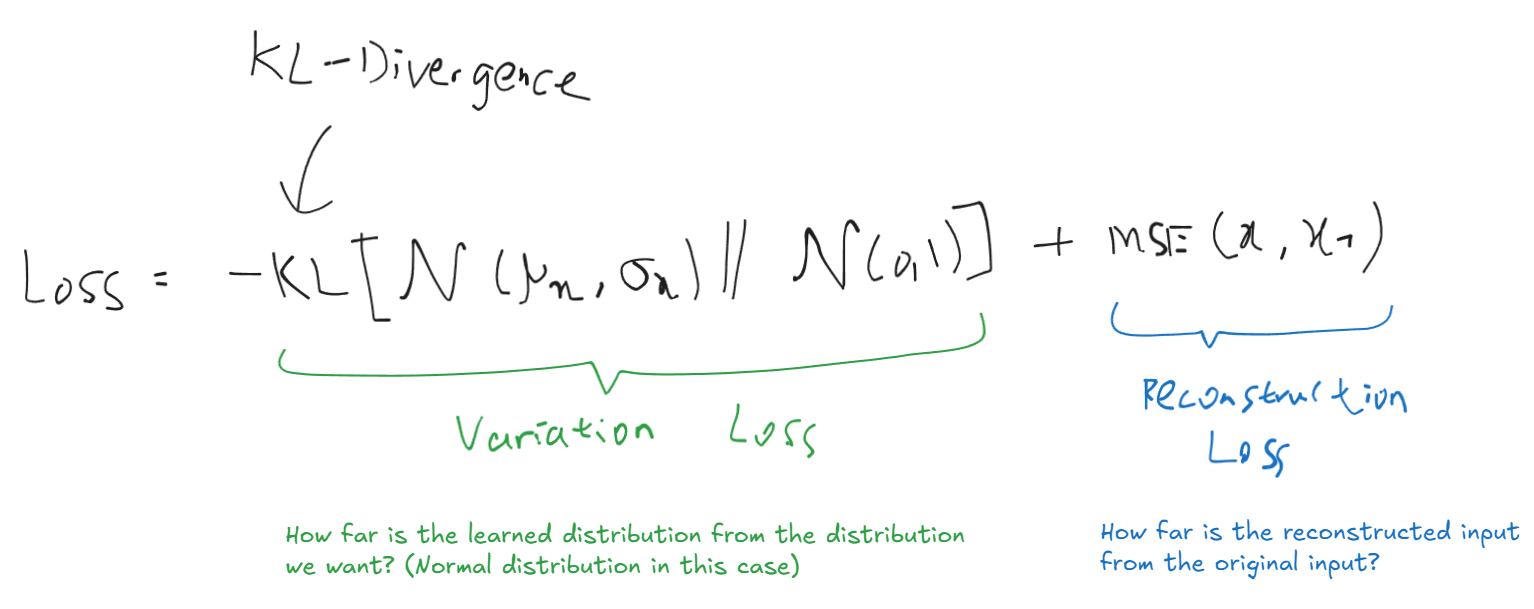 KL-Divergence
Loss = -KL[N(μₓ, σₓ) || N(0,1)] + MSE(x, x₁)
Variation Loss
Reconstruction
Loss
How far is the learned distribution from the distribution
we want? (Normal distribution in this case)
How far is the reconstructed input
from the original input?